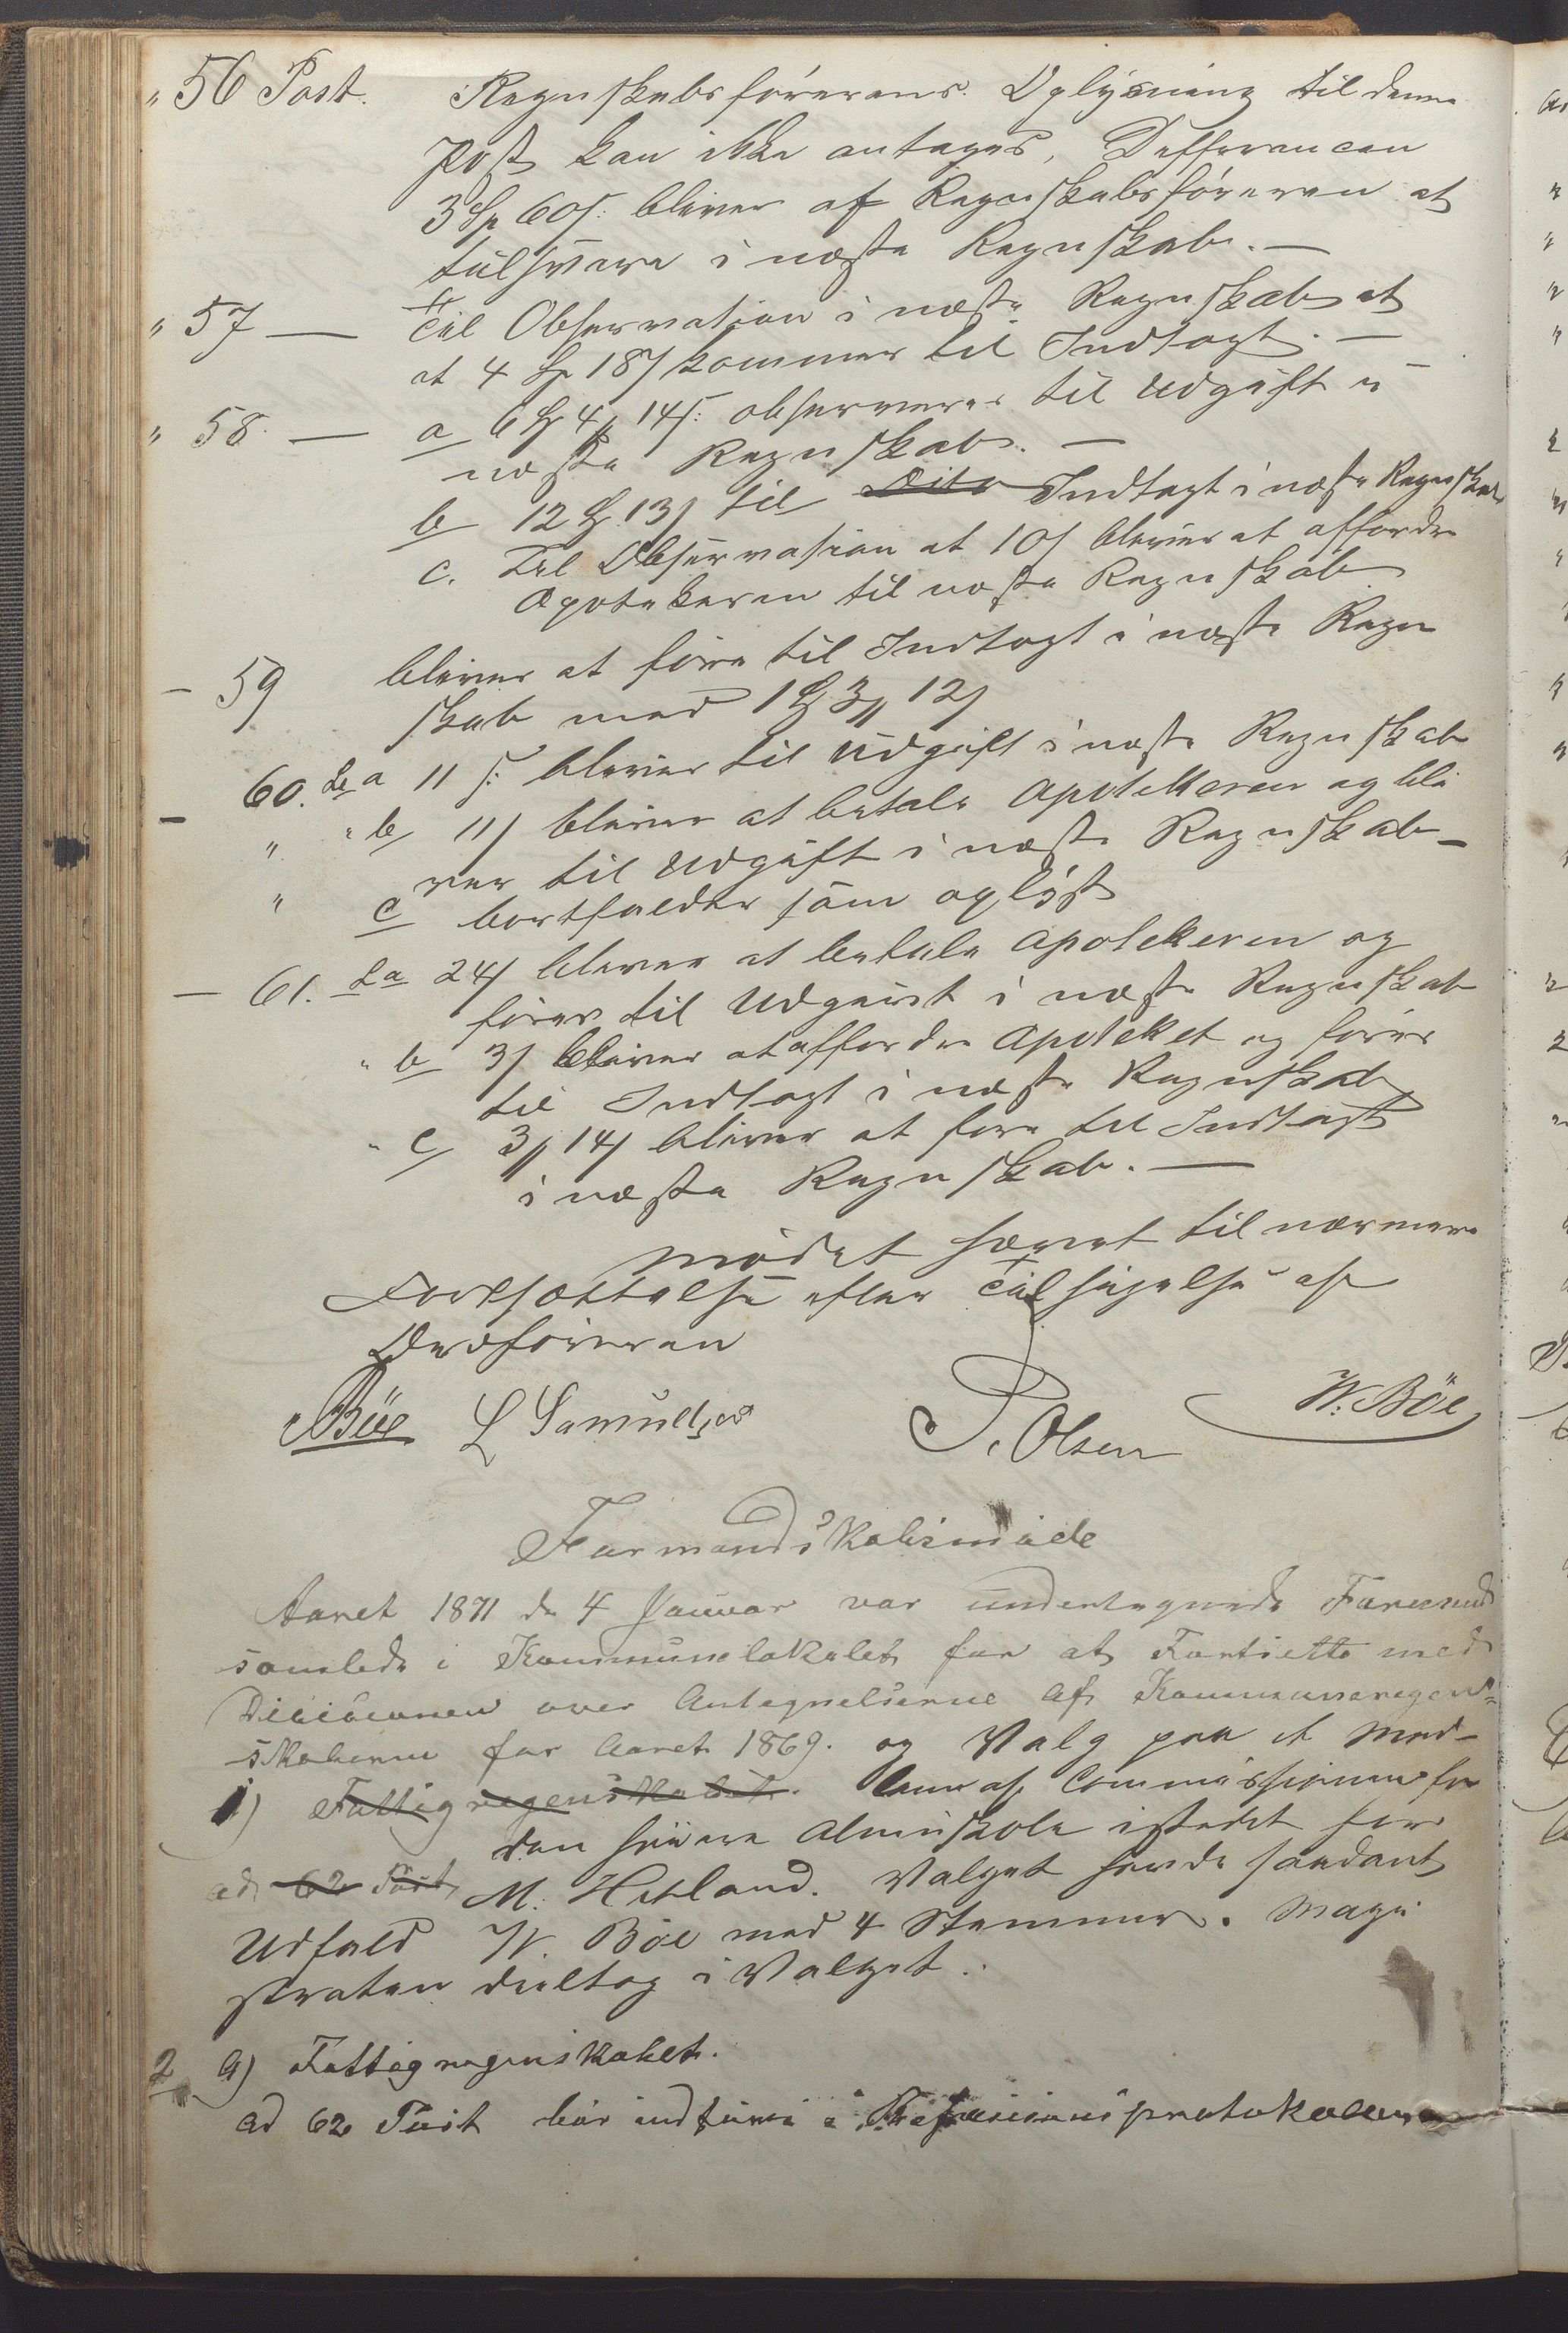 " 56 Post. Regnskabsförerens Oplysning til denne
Post kan ikke antages, Defferencen
3 Sp 60 s: bliver af Regnskabsföreren at
tilsvare i næste Regnskab. —
" 57 — Til Observation i næste Regnskab at
at 4 Sp 18 s kommer til Indtægt. —
" 58. — a 6 Sp 4 # 14 s: observeres til Udgift i
næste Regnskab. —
b 12 Sp 13 s til Dito Indtægt i næste Regnskab
c. Til Observasion at 10 s bliver at affordre
Apotekeren til næste Regnskab
— 59 bliver at före til Indtægt i næste Regn
skab med 1 Sp 3 # 12 s
— 60. La a 11 s: bliver til Udgift i næste Regnskab
" " b 11 s bliver at betale Apotekeren og bli
ver til Udgift i næste Regnskab —
" c bortfalder som oplyst
— 61. La 24 s bliver at betale Apotekeren og
föres til Udgivt i næste Regnskab
" b 3 s bliver at affordre Apoteket og föres
til Indtægt i næste Regnskab
" c 3 # 14 s bliver at före til Indtægt
i næste Regnskab. —
Mödet hævet til nærmere
Fortsættelse efter Tilsigelse af
Ordföreren
Böe L Samuelsen P. Olsen W. Böe
Formandskabsmöde
Aaret 1871 de 4 Januar var undertegnede Formænd
samlede i Kommunelokalet for at Fortsette med
Decisionen over Antegnelserne af Kommuneregen-
skaberne for Aaret 1869. og Valg paa et Med-
1) Fattigregenskabet. lem af Commissionen for
den höiere Almuskole istedet for
ad 62 Post M. Hetland. Valget havde saadant
Udfald W. Böe med 4 Stemmer. Magi
straten deeltog i Valget.
2 a) Fattigregenskabet.
ad 62 Post bör indföres i Revisionsprotokollen